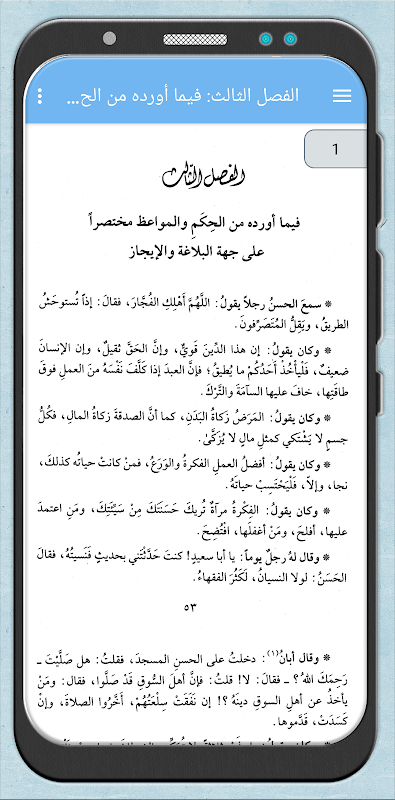 الفصل الثالث: فيما أورده من الح...
1
الفصل الثّالث
فيما أورده من الحِكَمِ والمواعظ مختصراً
على جهة البلاغة والإيجاز
* سمعَ الحسنُ رجلاً يقولُ: اللَّهُمَّ أَهْلِكِ الفُجَّارَ، فقالَ: إذاً تُستوحَشُ
الطريقُ، ويَقِلُّ المُتَصَرِّفونَ.
* وكان يقولُ: إن هذا الدِّينَ قويٌّ، وإنَّ الحَقَّ ثقيلٌ، وإن الإنسانَ
ضعيفٌ، فَلْيأْخُذْ أَحَدُكُمْ ما يُطيقُ؛ فإنَّ العبدَ إذا كَلَّفَ نَفْسَهُ منَ العملِ فوقَ
طاقتِها، خافَ عليها السآمَةَ والتَّرْكَ.
* وكان يقولُ: المَرَضُ زكاةُ البَدَنِ، كما أنَّ الصدقةَ زكاةُ المالِ، فكُلُّ
جسمٍ لا يَشْتكي كمثلِ مالٍ لا يُزكَّىٰ.
* وكان يقولُ: أفضلُ العملِ الفكرةُ والوَرَعُ، فمنْ كانتْ حياتُه كذلكَ،
نجا، وإلاّ، فَلْيَحْتَسِبْ حياتَهُ.
* وكان يقولُ: الفِكْرةُ مرآةٌ تُريكَ حَسَنَتَكَ مِنْ سَيِّئَتِكَ، ومَنِ اعتمدَ
عليها، أفلحَ، ومَنْ أغفلَها، افْتُضِحَ.
* وقال لهُ رجلٌ يوماً: يا أبا سعيدٍ! كنتَ حَدَّثْتَني بحديثٍ فَنَسيتُهُ، فقالَ
الحَسَنُ: لولا النسيانُ، لَكَثُرَ الفقهاءُ.
٥٣
* وقال أبانُ(١): دخلتُ على الحسنِ المسجدَ، فقلتُ: هل صَلَّيْتَ ـ
رَحِمَكَ اللهُ ؟ ـ فقالَ: لا! قلتُ: فإنَّ أهلَ السُّوقِ قَدْ صَلُّوا، فقال: ومَنْ
يأخذُ عن أهلِ السوقِ دينَهُ ؟! إن نَفَقَتْ سِلْعَتُهُمْ، أَخَّرُوا الصلاةَ، وإنْ
كَسَدَتْ، قَدَّموها.